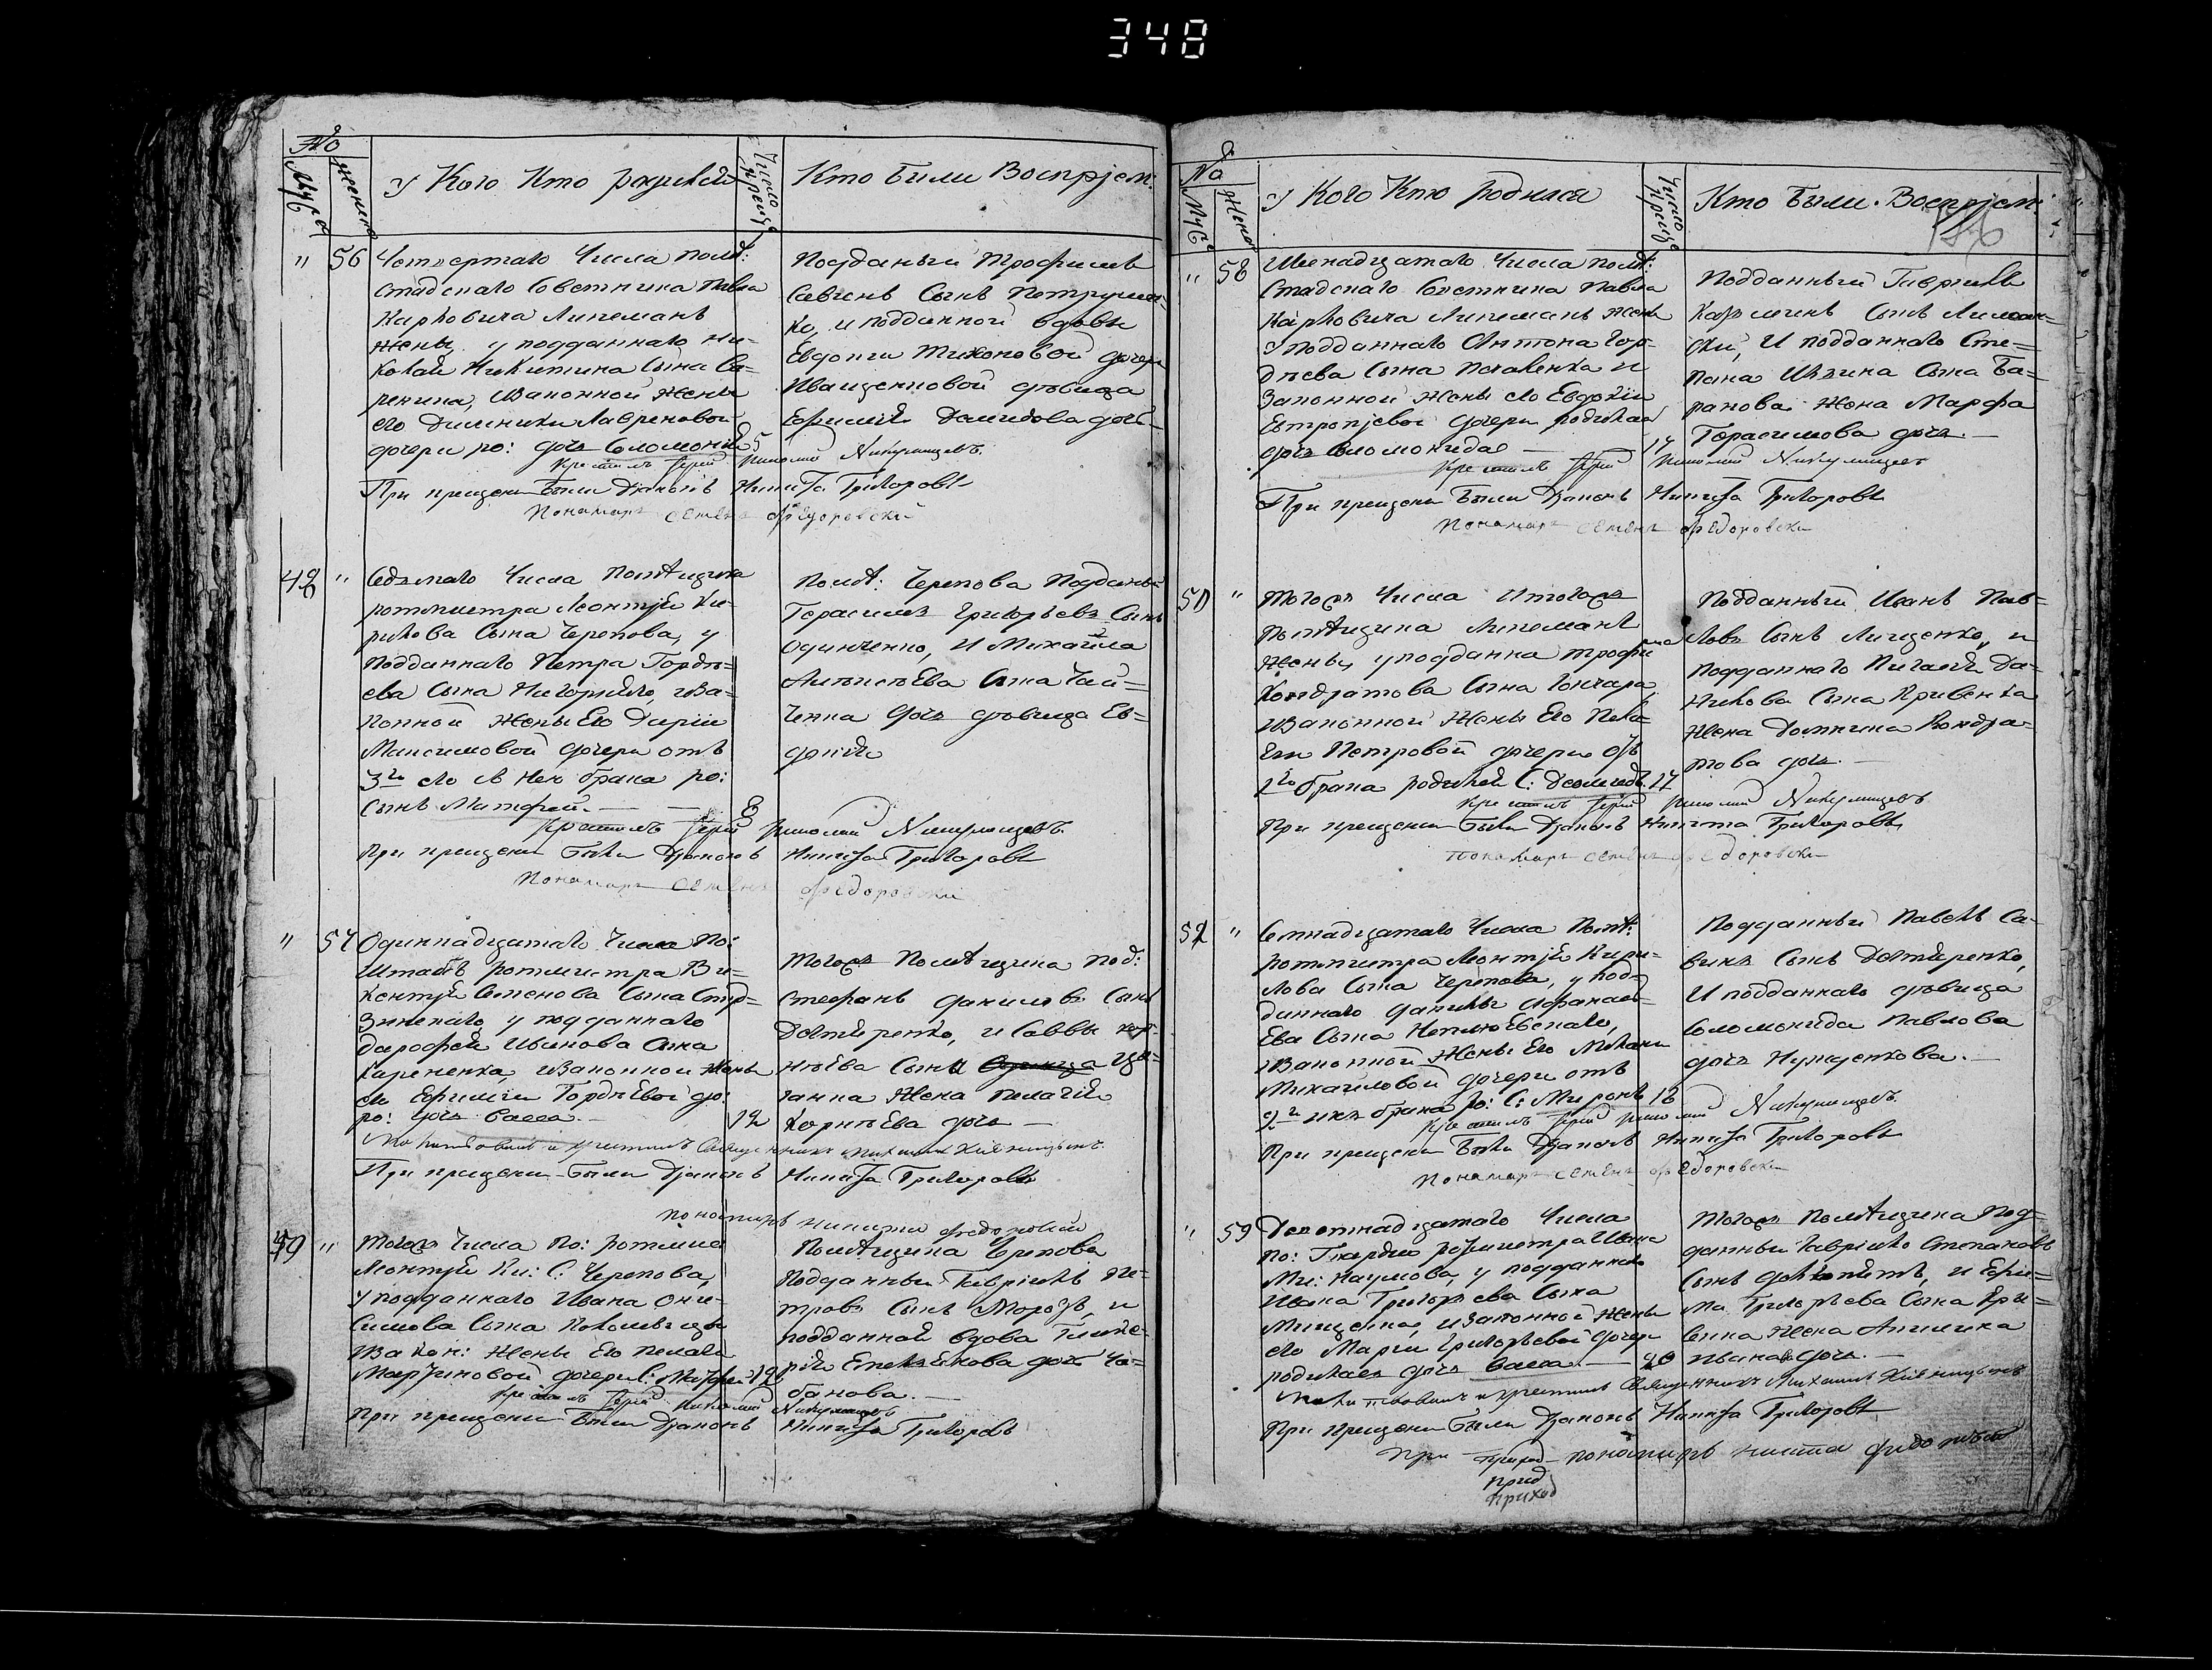 348
№
Мужс
женска
У Кого Кто родился
Число крещ
Кто были Воспрiем:
" 56 Четвертаго Числа помѣ:
стадскаго Советника Павла
Карловича Липеманъ
жены, у подданнаго Ни-
колая Никитина Сына Са-
ренина, изаконной жены
его Димники Лавреновой
дочери ро: дочь Соломонія 5
Подданый Трофимъ
Савинъ Сынъ Петрушен-
ко, и подданной вдовы
Евдокіи Тихоновой дочери
Иващенковой дѣвица
Ефимія Демидова дочь
Крестилъ Іерей Николай Никулищевъ
При крещеніи были Дьяконъ Никита Григоровъ
Пономарь Семенъ Федоровскій
48 " Седьмаго Числа помѣщика
ротмистра Леонтія Ки-
рилова Сына Черепова, у
подданнаго Петра Гордѣ-
ева Сына Нигоридко, иза-
конной жены Его Даріи
Максимовой дочери отъ
3го его и нея брака ро:
Сынъ Матфей. — — 8
помѣ: Черепова Подданый
Герасимъ Григорьевъ Сынъ
Одинченко, И Михайла
Алексѣева Сына Чай-
ченка дочь дѣвица Ев-
докія
Крестилъ Іерей Николай Никулищевъ
При крещеніи были Дьяконъ Никита Григоровъ
Пономарь Семенъ Федоровскій
" 57 Одиннадцатаго Числа По:
Штабъ ротмистра Ви-
кентія Семенова Сына Струд-
зинскаго у подданнаго
Дарофея Иванова Сына
Кариченка, изаконной жены
его Ефиміи Гордѣевой до:
ро: дочь Васса. — 12
Тогожъ Помѣщика под:
Стефанъ Даниловъ Сынъ
Дехтиренко, и Саввы кор-
нѣева Сына Цы-
ганка жена Пелагія
Корнѣева дочь —
Молитвовалъ и крестилъ Священникъ Михаилъ
При крещеніи были Дьяконъ Никита Григоровъ
пономарь никита федоровскій
49 " Тогожъ Числа По: ротмис
Леонтія Ки: С: Черепова,
У подданнаго Ивана Они-
симова Сына Коломѣйцы
Изакон: жены Его Пелагеи
Мартиновой дочери С: Матфей 12
Помѣщика Черепова
Подданный Гавріилъ Пе-
тровъ Сынъ Морозъ, и
подданной вдова Глике-
рія Емельянова дочь Ча-
банова. —
Крестилъ Іерей Николай Никулищевъ
При крещеніи были Дьяконъ Никита Григоровъ
№
Муж
Жено
У Кого Кто родился
Число крещ
Кто были Воспрiем:
" 58 Шеснадцатаго Числа помѣ:
Стадскаго Советника Павла
Карловича Липеманъ жены
У подданнаго Антона Гор-
дѣева Сына Пскаленка и
Законной жены его Евдокіи
Евтропіевой дочери родилась
дочь Соломонида — 17
Подданный Гаврилъ
Карпичевъ Сынъ Лиман-
скій, И подданнаго Сте-
пана Ильина Сына Ба-
ранова жена Марфа
Герасимова дочь. —
Крестилъ Іерей Николай Никулищевъ
При крещеніи были Дьяконъ Никита Григоровъ
Пономарь Семенъ Федоровскій
50 " Тогожъ Числа Итогожъ
Помѣщика Липеманъ
Жены у подданна Трофима
Кондратова Сына Гончара,
изаконной жены Его Пела-
геи Петровой дочери отъ
2го брака родился С: Деомидъ. 17
Подданный Иванъ Пав-
ловъ Сынъ Лищенко, и
подданнаго Пигасія Да-
нилова Сына Кривенка
жена Домникия Кондра-
това дочь. —
Крестилъ Іерей Николай Никулищевъ
При крещеніи были Дьяконъ Никита Григоровъ
пономарь Семенъ Федоровскій
52 " Семнадцатаго Числа Помѣ:
ротмистра Леонтія Кири-
лова Сына Черепова, у под-
даннаго Данилы Афанась-
Ева Сына Неплюевскаго,
изаконной жены Его Меланіи
Михайловой дочери отъ
2го ихъ брака ро: С: Миронъ 18
Подданный Павелъ Са-
винъ Сынъ Дехтиренко,
И подданнаго дѣвица
Соломонида Павлова
дочь Нужденкова. —
Крестилъ Іерей Николай Никулищевъ
При крещеніи были Дьяконъ Никита Григоровъ
Пономарь Семенъ Федоровскій
" 59 Девятнадцатаго Числа
По: Гвардіи ротмистра Ивана
Ми: Наумова, у подданнаго
Ивана Григорьева Сына
Мищенка, изаконной жены
его Маріи Григорьевой дочери
родилась дочь Васса. — 20
Тогожъ Помѣщика Под-
данный Гаврило Степановъ
Сынъ, и Ефи-
ма Григорьева Сына Кры-
венка жена Ангелика
Иванова дочь. —
Молитвовалъ и крестилъ Священникъ Михаилъ
При крещеніи были Дьяконъ Никита Григоровъ
При приход пономарь никита федоровскій
прид
приход